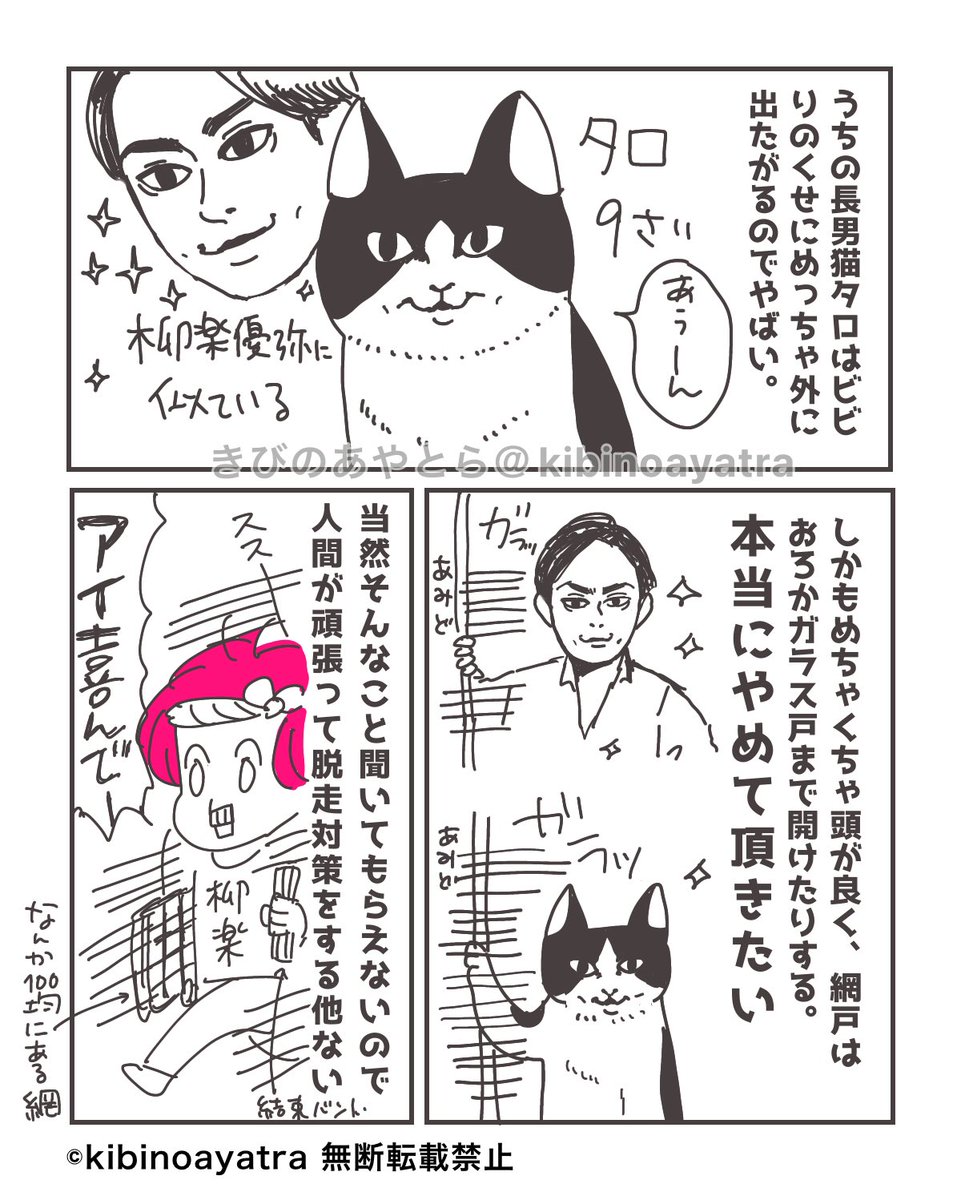 うちの長男猫タロはビビ
りのくせにめっちゃ外に
出たがるのでやばい。
タロ
9さい
あぅーん
柳楽優弥に
似ている
きびのあやとら@kibinoayatra
しかもめちゃくちゃ頭が良く、網戸は
おろかガラス戸まで開けたりする。
本当にやめて頂きたい
ガラッ
あみど
ガラッ
あみど
当然そんなこと聞いてもらえないので
人間が頑張って脱走対策をする他ない
スス
アイ喜んでー
柳楽
結束バンド
なんか100均にある網
©kibinoayatra 無断転載禁止